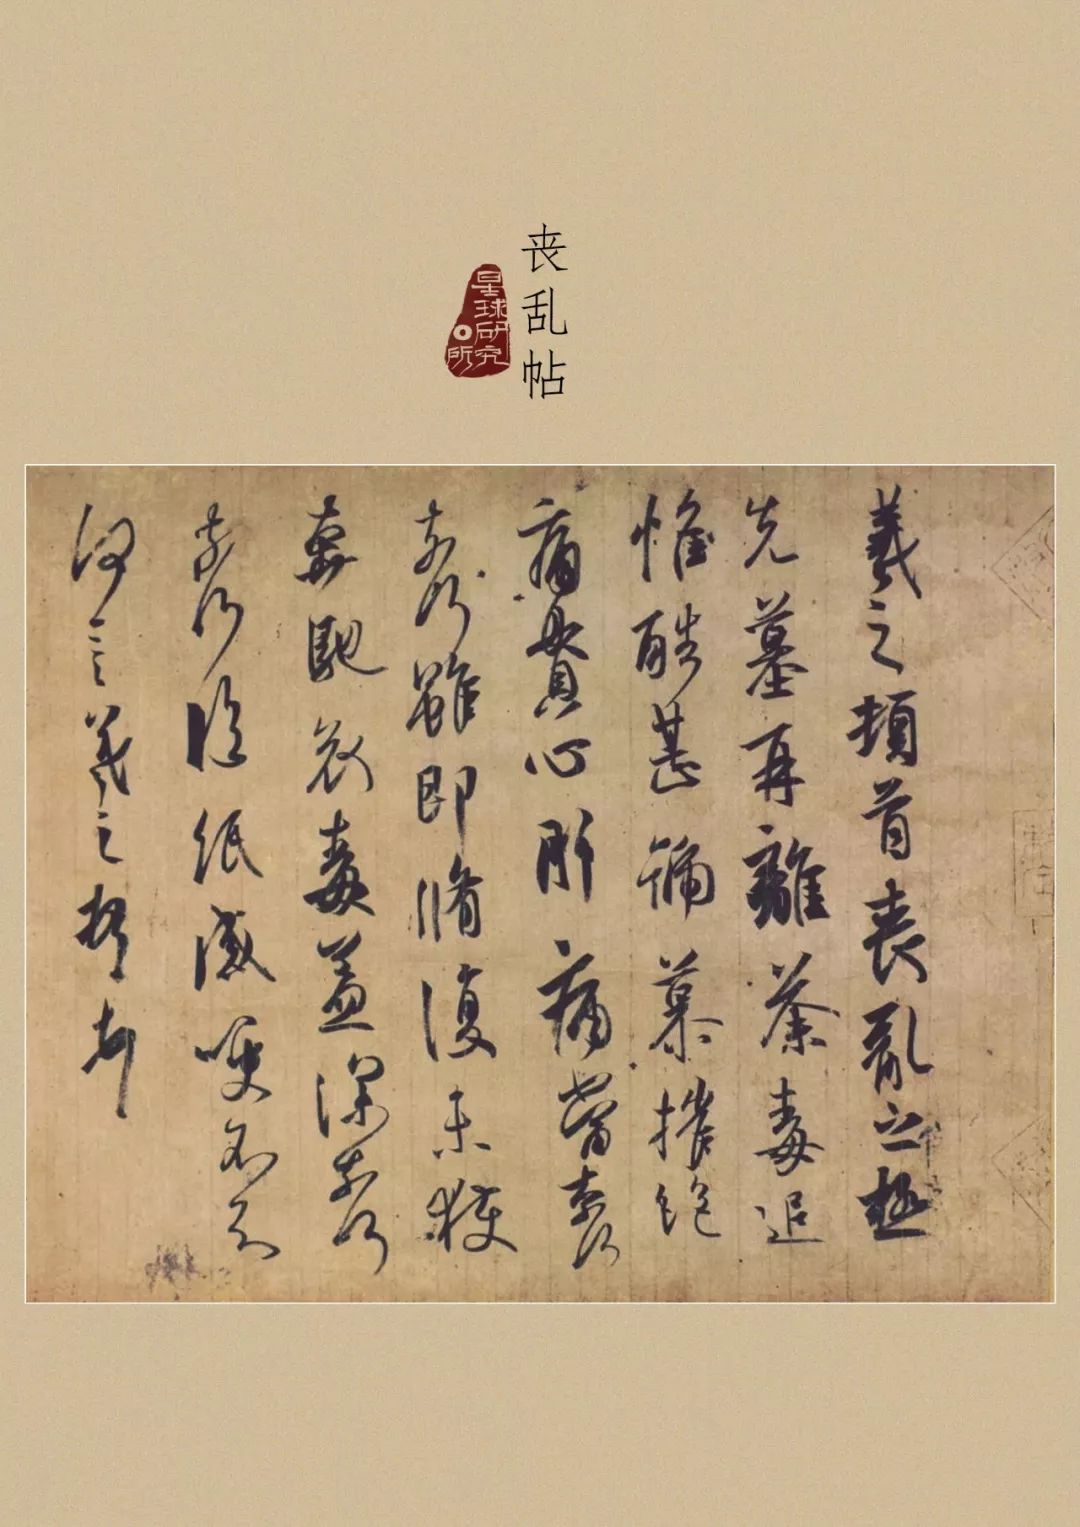 丧乱帖
星球研究所
羲之頓首喪亂之極
先墓再離荼毒追
惟酷甚號慕摧絶
痛貫心肝痛當柰何
柰何雖即脩復未獲
奔馳哀毒益深柰何
柰何臨紙感哽不知
何言羲之頓首頓首